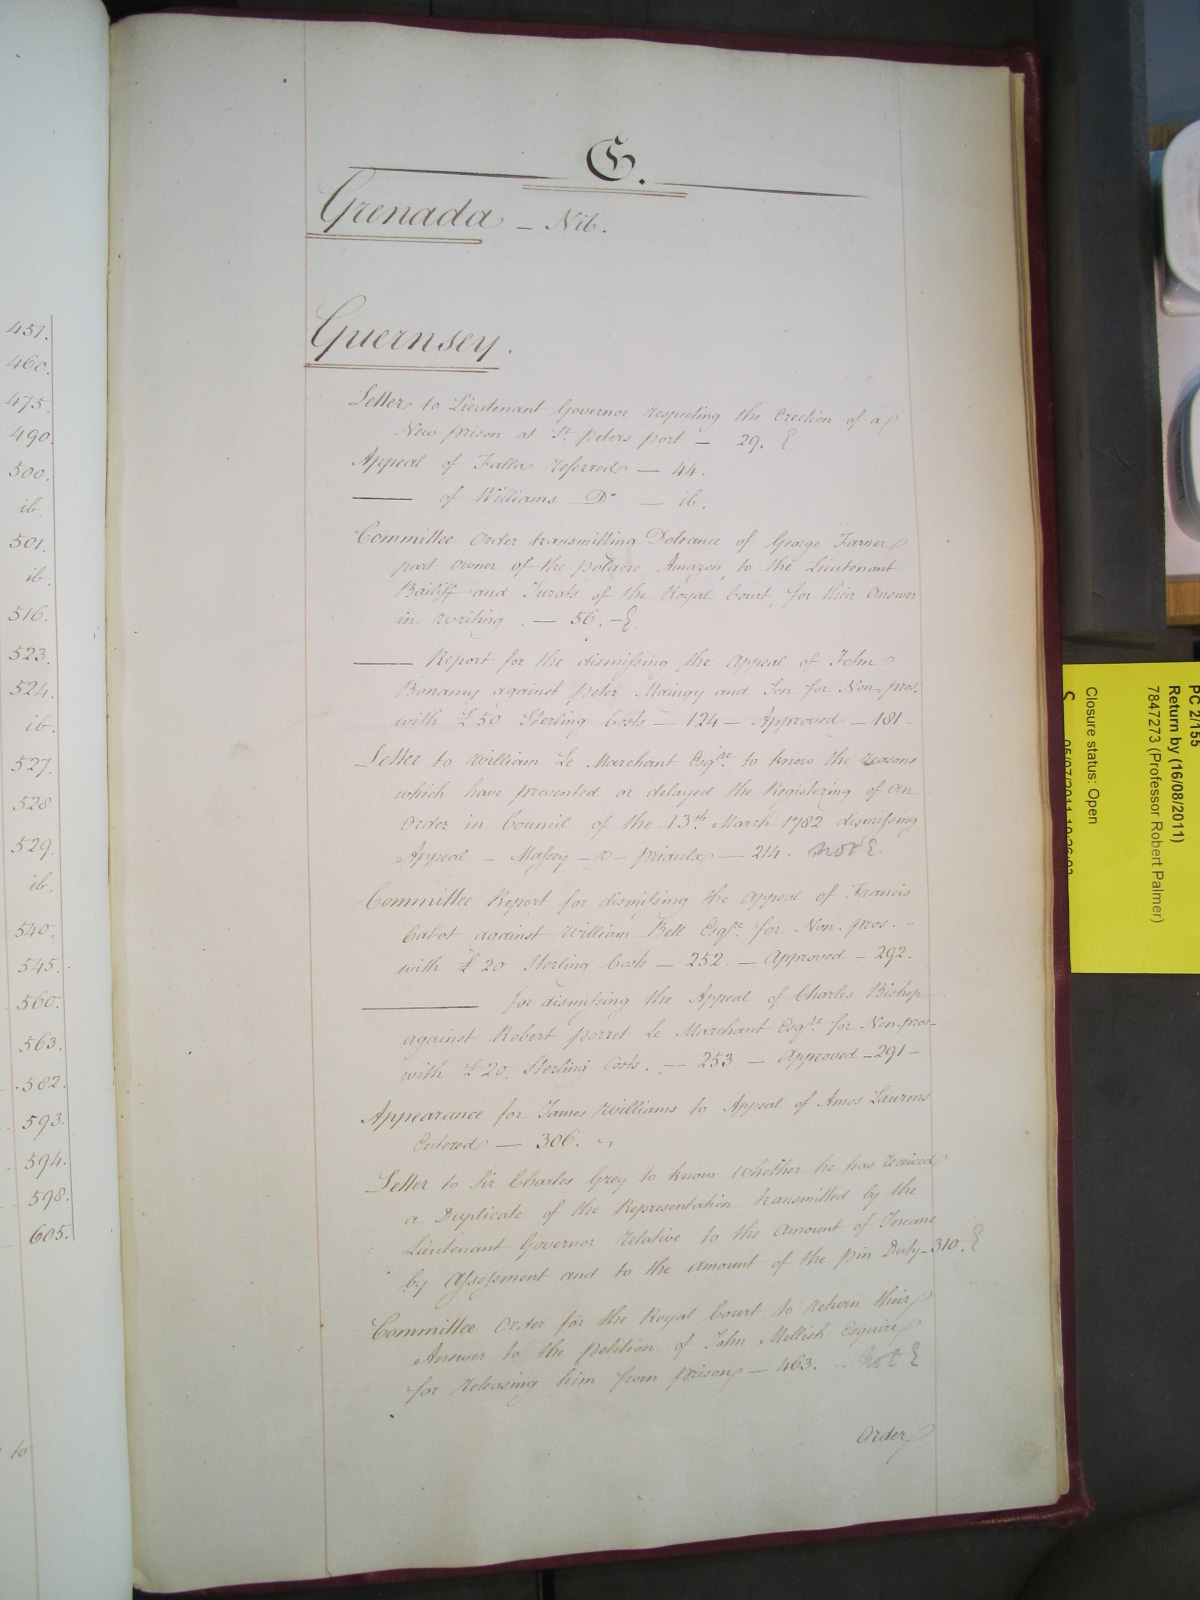 451.
460.
475.
490.
500.
ib.
501.
ib.
516.
523.
524.
ib.
527.
528
529.
ib.
540.
545.
560.
563.
582.
593.
594.
598.
605.
to
G.
Grenada — Nil.
Guernsey.
Letter to Lieutenant Governor respecting the Erection of a
New prison at St. Peters port — 29. E
Appeal of Falla Referred — 44.
—— of Williams Do — ib.
Committee Order transmitting Doleance of George Farner
part owner of the polacre Amazon, to the Lieutenant
Bailiff and Jurats of the Royal Court, for their answer
in writing. — 56. — E.
—— Report for the dismissing the Appeal of John
Bonamy against Peter Maingy and Son for Non-pros.
with £50 Sterling Costs — 124 — Approved — 181 —
Letter to William Le Marchant Esqre. to know the reasons
which have prevented or delayed the Registering of an
Order in Council of the 13th. March 1782 dismissing
Appeal — Massey — v — Priaulx — 214. not E.
Committee Report for dismissing the Appeal of Francis
Cabot against William Bell Esqre. for Non-pros. —
with £20 Sterling Costs — 252. — Approved — 292.
—— for dismissing the Appeal of Charles Bishop
against Robert Porret Le Marchant Esqre. for Non-pros—
with £20. Sterling Costs. — 253 — Approved — 291 —
Appearance for James Williams to Appeal of Amos Laurens
Entered — 306.
Letter to Sir Charles Grey to know whether he has received
a Duplicate of the Representation transmitted by the
Lieutenant Governor relative to the Amount of Income
by Assessment and to the amount of the pier Duty — 310. E
Committee Order for the Royal Court to return their
Answer to the petition of John Mellish Esquire
for releasing him from prison — 463. not E
Order
PC 2/155
Return by (16/08/2011)
7847273 (Professor Robert Palmer)
Closure status: Open